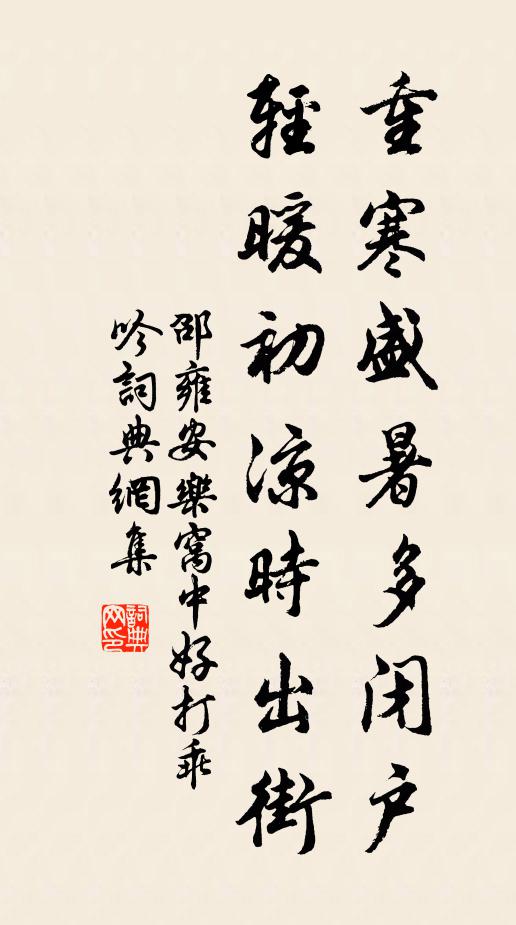 重寒盛暑多闭户
輕暖初涼時出街
邵雍安樂窩中好打乖
吟詞典網集
詞典
网印